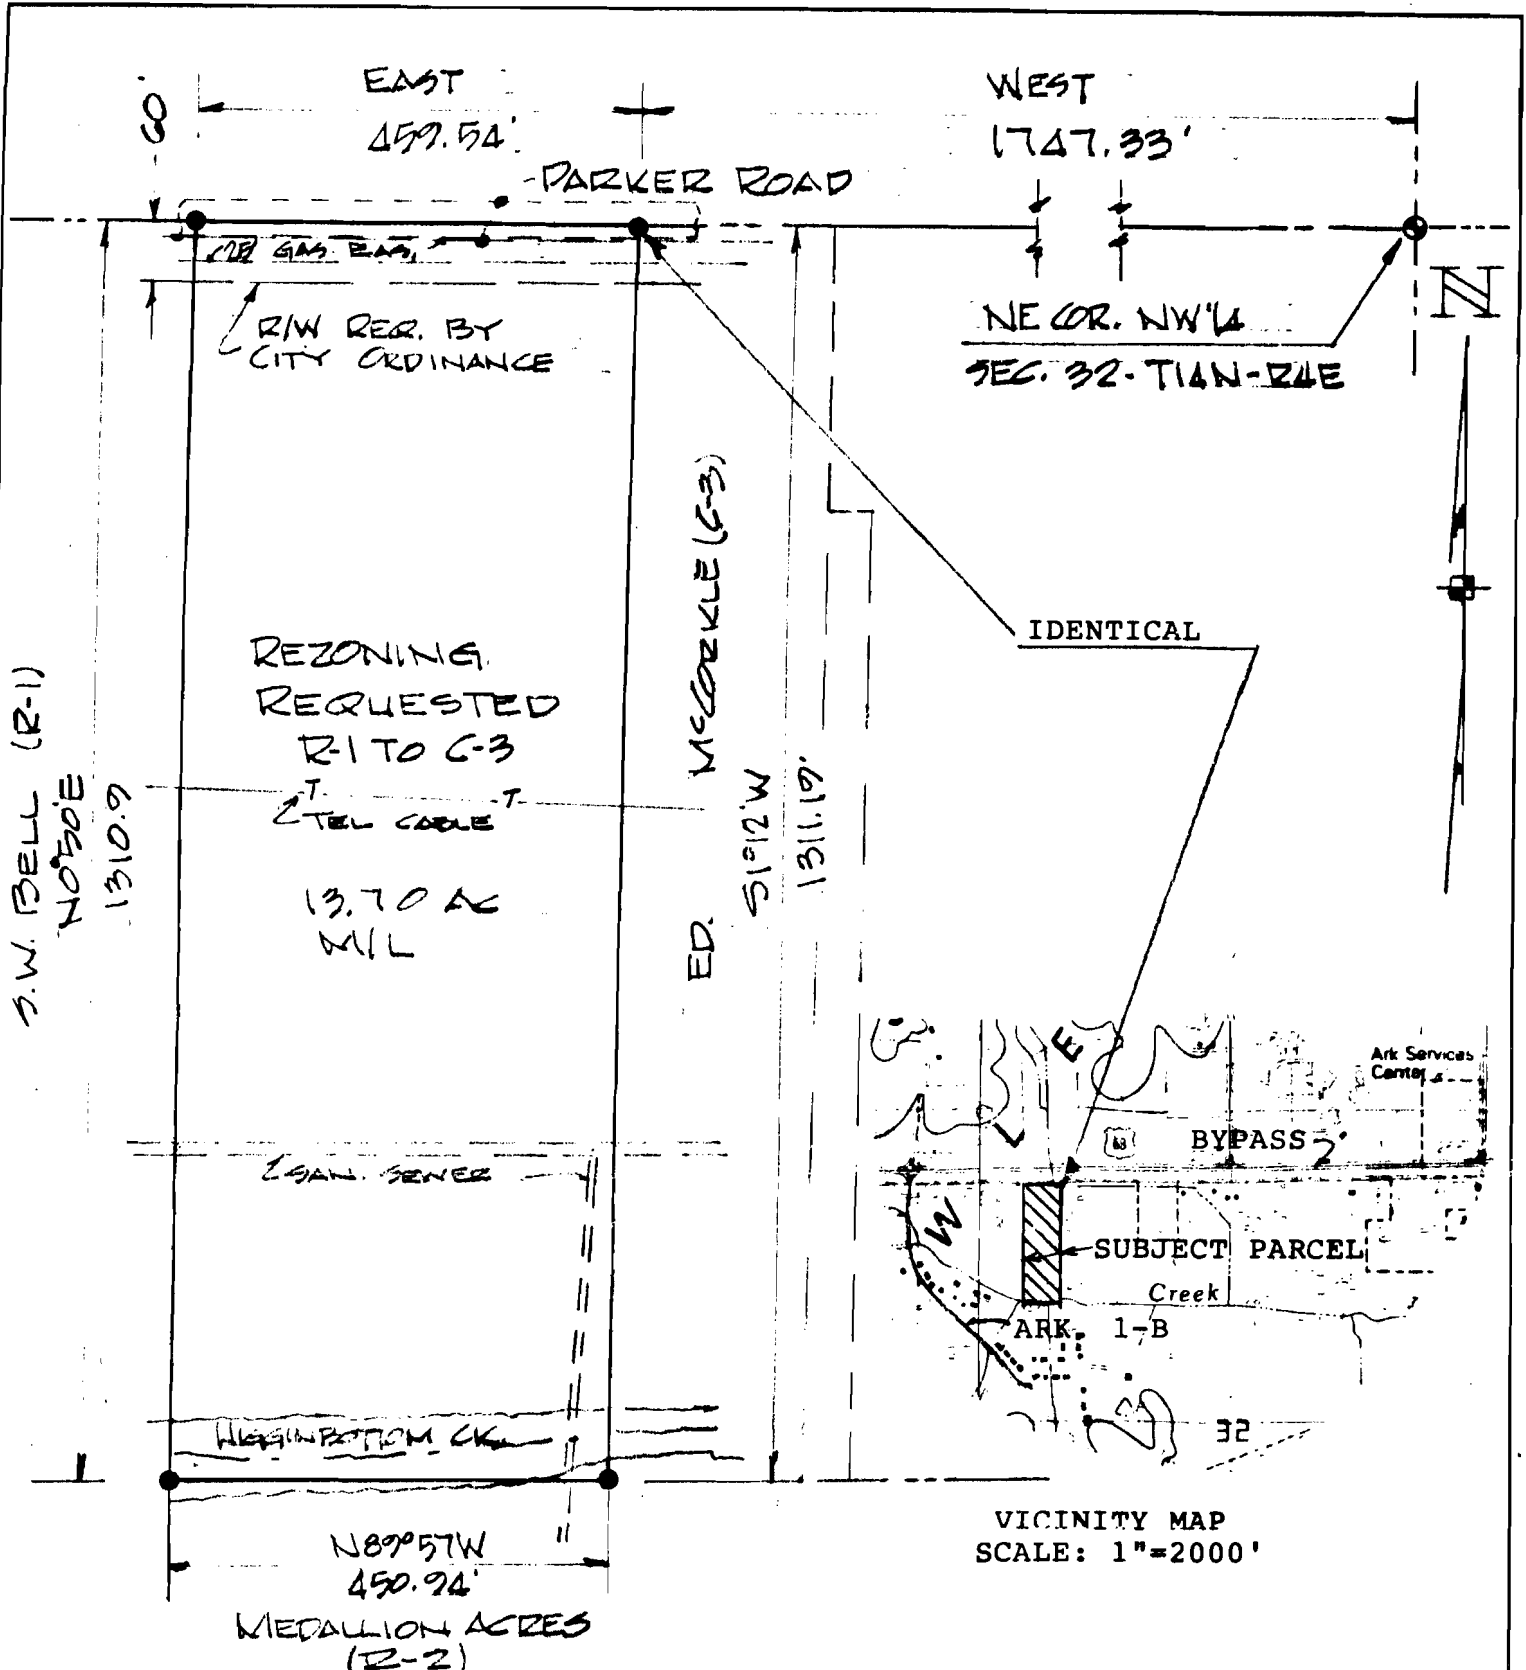 EAST
459.54'
WEST
1747.33'
60'
PARKER ROAD
GAS EAS.
R/W REQ. BY
CITY ORDINANCE
NE COR. NW 1/4
SEC. 32-T14N-R4E
N
IDENTICAL
REZONING
REQUESTED
R-1 TO C-3
T T
TEL CABLE
13.70 AC
M/L
S.W. BELL (R-1)
N0°50'E
1310.9
ED. McCORKLE (C-3)
S1°12'W
1311.19'
SAN. SEWER
HIGGINBOTTOM CK.
N89°57'W
450.94'
MEDALLION ACRES
(R-2)
Ark Services
Center
E
L
W
63
BYPASS
SUBJECT PARCEL
Creek
ARK. 1-B
32
VICINITY MAP
SCALE: 1"=2000'